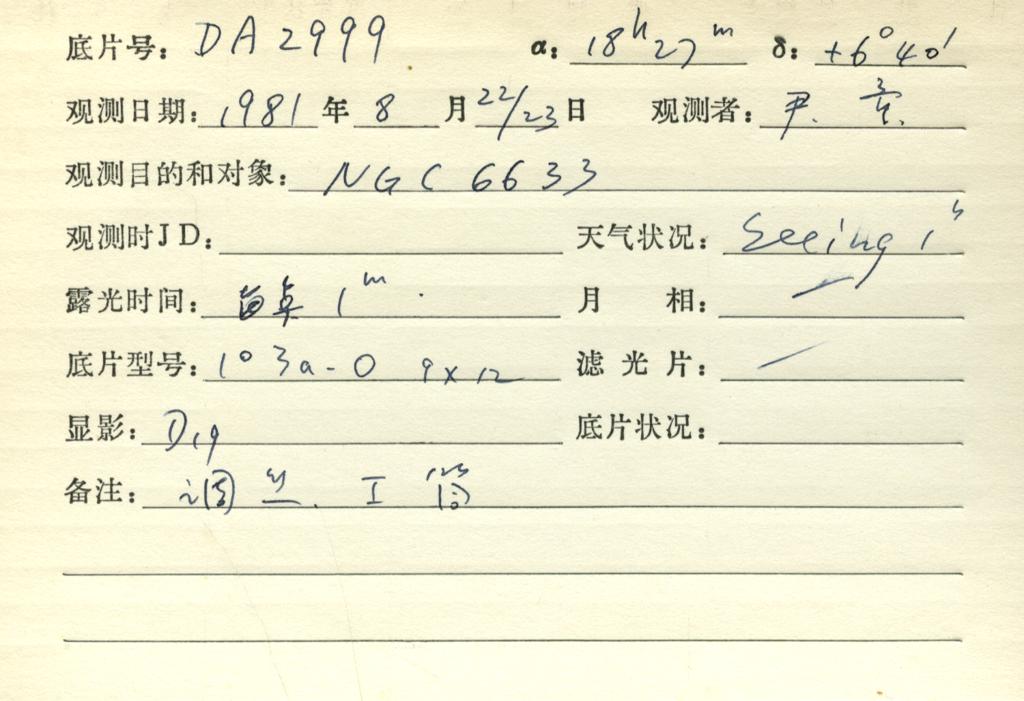 底片号: DA2999 α: 18h27m δ: +6°40′
观测日期: 1981年8月22/23日 观测者: 尹.
观测目的和对象: NGC 6633
观测时JD: 天气状况: Seeing 1"
露光时间: 1m.
月 相: —
底片型号: 103a-O 9×12 滤光片: —
显影: D19 底片状况:
备注: 调丝. I 筒